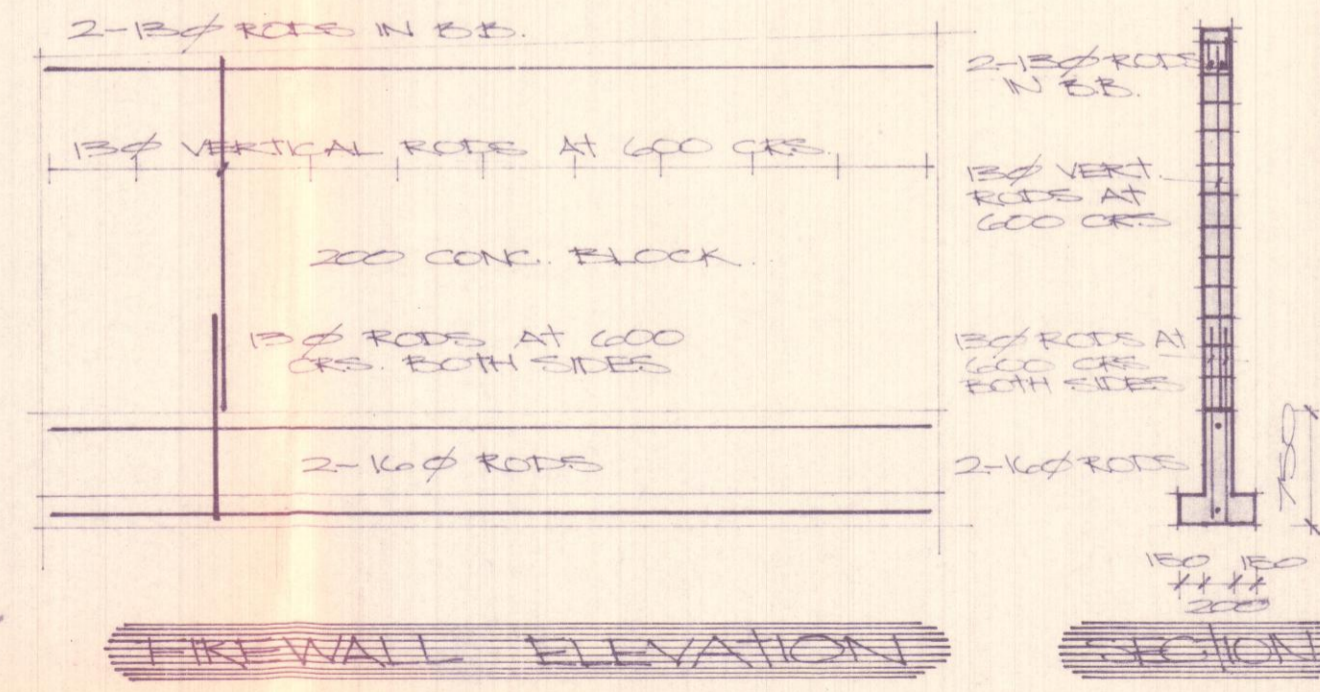 2-13Ø RODS IN B.B.
13Ø VERTICAL RODS AT 600 CRS.
200 CONC. BLOCK.
13Ø RODS AT 600
CRS. BOTH SIDES
2-16Ø RODS
FIREWALL ELEVATION
2-13Ø RODS
IN B.B.
13Ø VERT.
RODS AT
600 CRS
13Ø RODS AT
600 CRS
BOTH SIDES
2-16Ø RODS
750
150 150
200
SECTION